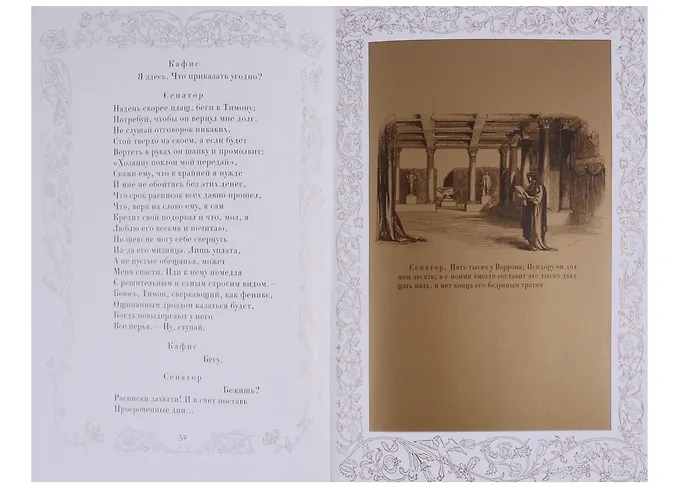 Кафис
Я здесь. Что приказать угодно?
Сенатор
Надень скорее плащ, беги к Тимону;
Потребуй, чтобы он вернул мне долг.
Не слушай отговорок никаких,
Стой твердо на своем, а если будет
Вертеть в руках он шапку и промолвит:
«Хозяину поклон мой передай»,
Скажи ему, что в крайней я нужде
И мне не обойтись без этих денег,
Что срок расписок всех давно прошел,
Что, веря на слово ему, я сам
Кредит свой подорвал и что, мол, я
Люблю его весьма и почитаю,
Но шею не могу себе свернуть
Из-за его мизинца. Лишь уплата,
А не пустые обещанья, может
Меня спасти. Иди к нему немедля
С решительным и самым строгим видом. —
Боюсь, Тимон, сверкающий, как феникс,
Ощипанным дроздом казаться будет,
Когда повыдергают у него
Все перья. — Ну, ступай.
Кафис
Бегу.
Сенатор
Бежишь?
Расписки захвати! И в счет поставь
Просроченные дни...
52
Сенатор. Пять тысяч у Варрона; Исидору он дол-
жен десять; а с моими вместе составит это тысяч двад-
цать пять, и нет конца его безумным тратам